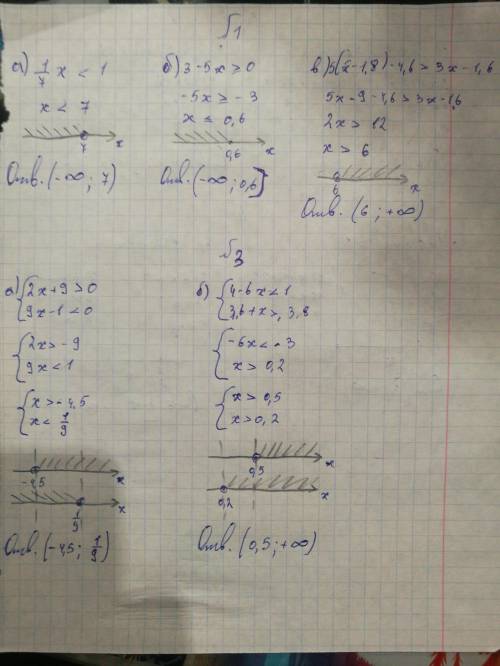 √1
а) 1/7 x < 1
x < 7
7 x
Отв. (-∞; 7)
б) 3-5x ≥ 0
-5x ≥ -3
x ≤ 0,6
0,6 x
Отв. (-∞; 0,6]
в) 5(x-1,8)-4,6 > 3x-1,6
5x-9-4,6 > 3x-1,6
2x > 12
x > 6
6 x
Отв. (6; +∞)
√3
а) {2x+9 > 0
9x-1 < 0
{2x > -9
9x < 1
{x > -4,5
x < 1/9
-4,5 x
1/9 x
Отв. (-4,5; 1/9)
б) {4-6x < 1
3,6+x > 3,8
{-6x < -3
x > 0,2
{x > 0,5
x > 0,2
0,5 x
0,2 x
Отв. (0,5; +∞)